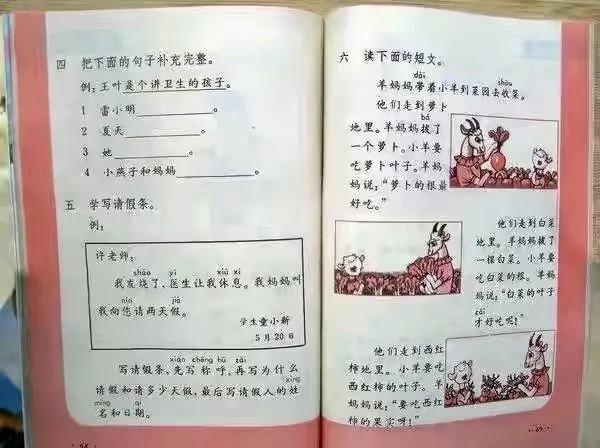 四 把下面的句子补充完整。
例:王叶是个讲卫生的孩子。
1 雷小明
2 夏天
3 她
4 小燕子和妈妈
五 学写请假条。
例:
许老师:
shāo yī xiū xi
我发烧了,医生让我休息。我妈妈叫
nín jià
我向您请两天假。
学生童小新
5月20日
xiān chēng hū zài
写请假条,先写称呼,再写为什么
xìng
请假和请多少天假,最后写请假人的姓
míng qī
名和日期。
·68·
六 读下面的短文。
dài shōu
羊妈妈带着小羊到菜园去收菜。
他们走到萝卜
bá
地里。羊妈妈拔了
一个萝卜。小羊要
吃萝卜叶子。羊妈
妈说:“萝卜的根最
好吃。”
他们走到白菜
地里。羊妈妈拔了
一棵白菜。小羊要
吃白菜的根。羊妈
妈说:“白菜的叶子
cái
才好吃呢!”
他们走到西红
柿地里。小羊要吃
西红柿的叶子。羊
妈妈说:“要吃西红
柿的果实呀!”
·69·